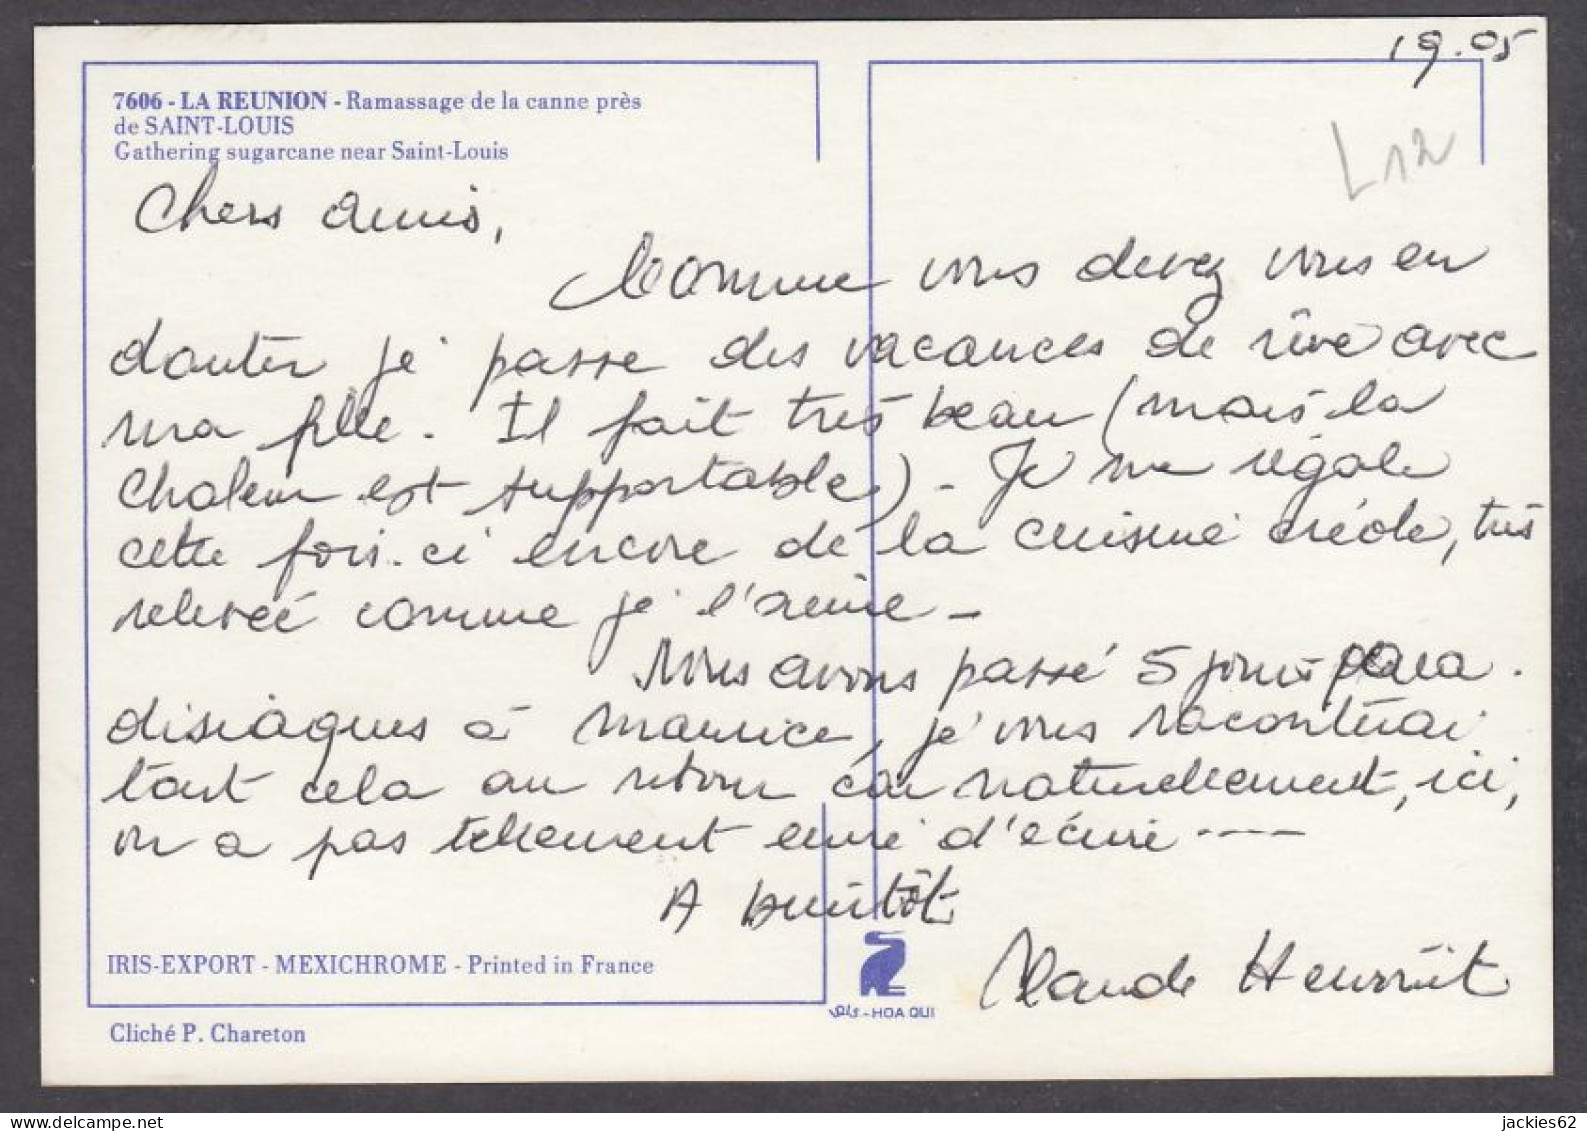 19.05
7606 - LA REUNION - Ramassage de la canne près
de SAINT-LOUIS
Gathering sugarcane near Saint-Louis
L12
Chers amis,
Comme vous devez vous en
douter je passe des vacances de rêve avec
ma fille. Il fait très beau (mais la
chaleur est supportable) - Je me régale
cette fois-ci encore de la cuisine créole, très
relevée comme je l'aime -
Nous avons passé 5 jours para-
disiaques à Maurice, je vous raconterai
tout cela au retour car naturellement, ici,
on a pas tellement envie d'écrire ----
A bientôt
Claude
IRIS-EXPORT - MEXICHROME - Printed in France
IRIS - HOA QUI
Cliché P. Chareton
jackies62